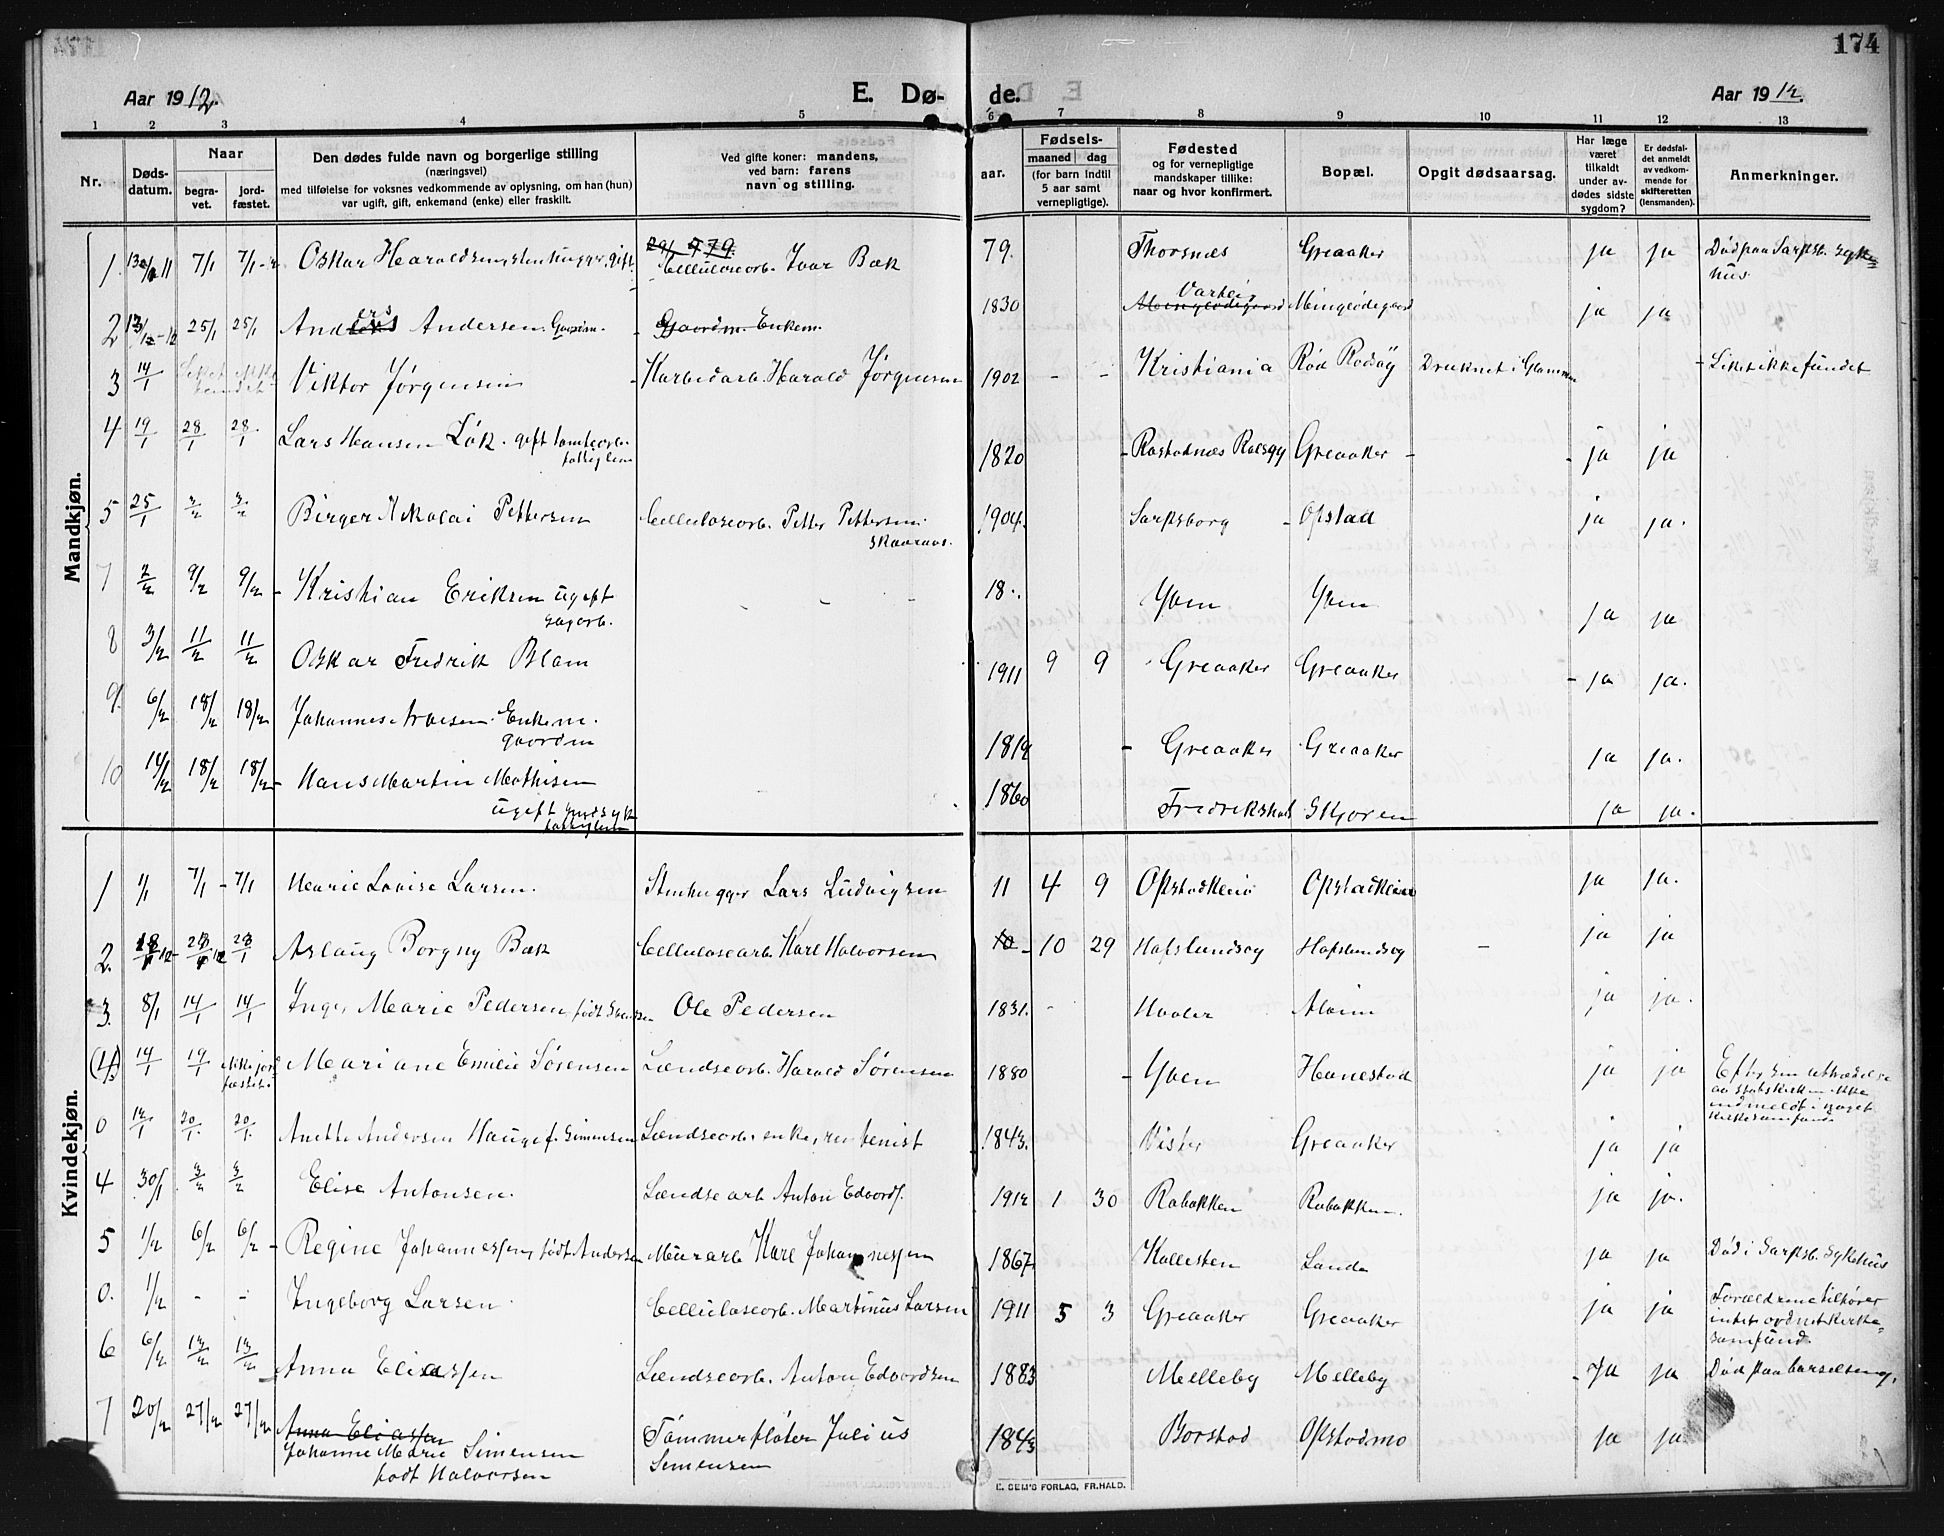 174
Aar 1912.
E. Dø-
de.
Aar 1912.
1 2 3 4 5 6 7 8 9 10 11 12 13
Nr.
Døds-
datum.
Naar
begra-
vet.
jord-
fæstet.
Den dødes fulde navn og borgerlige stilling
(næringsvei)
med tilføielse for voksnes vedkommende av oplysning, om han (hun)
var ugift, gift, enkemand (enke) eller fraskilt.
Ved gifte koner: mandens,
ved barn: farens
navn og stilling.
Fødsels-
aar.
maaned dag
(for barn indtil
5 aar samt
vernepligtige).
Fødested
og for vernepligtige
mandskaper tillike:
naar og hvor konfirmert.
Bopæl.
Opgit dødsaarsag.
Har læge
været
tilkaldt
under av-
dødes sidste
sygdom?
Er dødsfal-
det anmeldt
av vedkom-
mende for
skifteretten
(lensmanden).
Anmerkninger.
Mandkjøn.
1. 7/1 7/1 Oskar Haraldsen, stenhugger, gift. Celluloseorb. Ivar Bæk 79. Thorsnæs Greaaker ja ja Død paa Sarpsb. syke-
hus
2 25/1 25/1 Anders Andersen Gaardm. Gaardm. Enkem. 1830 Varteig Mingeødegaard ja ja
3 14/1 Viktor Jørgensen Karbidarb. Harald Jørgensen 1902 - - Kristiania Rød Rodøy Druknet i Glommen - Liket ikke fundet
4 19/1 28/1 28/1 Lars Hansen Løk. gift
1820 Greaaker ja ja
5 25/1 3/2 3/2 Birger Nikolai Pettersen Celluloseorb. Petter Pettersen 1904. Sarpsborg Opstad ja ja.
7 2/2 9/2 9/2 Kristian Eriksen ugift
sagarb. 18 Yven Yven ja ja
8 3/2 11/2 11/2 Oskar Fredrik Blom 1911 9 9 Greaaker Greaaker ja ja.
9. 6/2 18/2 18/2 Johannes Enkem.
gaardm 1812 Greaaker Greaaker ja ja.
10 14/2 18/2 18/2 Hans Martin Mathisen
ugift sindsyk 1860 Fredrikshald Skjøren ja ja.
Kvindekjøn.
1 1/1 7/1 7/1 Marie Lovise Larsen. Stenhugger Lars Ludvigsen 11 4 9 Opstadkleiv Opstadkleiv ja ja.
2. Aslaug Borgny Bæk Celluloseorb. Karl Halvorsen 10 10 29 Hafslundsøy Hafslundsøy - ja ja
3. 8/1 14/1 14/1 Inger Marie Pedersen, født Ole Pedersen 1831. - Haaler Alvim ja ja.
14/1 19/1 Ikke jord-
fæstet Mariane Emilie Sørensen Lændseorb. Harald Sørensen 1880 Yven Hanestad ja ja Efter sin uttrædelse
av statskirken ikke
indmeldt i noget
kirkesamfund
0 12/1 20/1. 20/1. Anette Andersen Hauge f. Simensen Lændseorb. enke, 1843. Vister Greaaker ja ja
4 30/1 3/2 3/2 Elise Antonsen. Lændsearb Anton Edvards. 1912 1 30 Rabakken Rabakken. ja ja.
5 1/2 6/2 6/2 Regine Johannessen, født Andersen Murarb Karl Johannessen 1867. Kallesten Sande ja ja Død i Sarpsb. Sykehus
0. 1/2 - - Ingeborg Larsen. Celluloseorb. Martinus Larsen 1911 5 3 Greaaker Greaaker ja ja Forældrene tilhører
intet ordnet kirke-
samfund
6 6/2 13/2 13/2 Anna Eliassen Lændseorb. Anton Edvardsen 1883 Melleby Melleby ja ja Død paa barselseng.
7 20/2 27/2 27/2 Anna Eliassen
Johanne Marie Simensen
født Halvorsen Tømmerfløter Julius
Simensen 1843 Borstad Opstadmo ja ja
E. SEM'S FORLAG, FR.HALD.